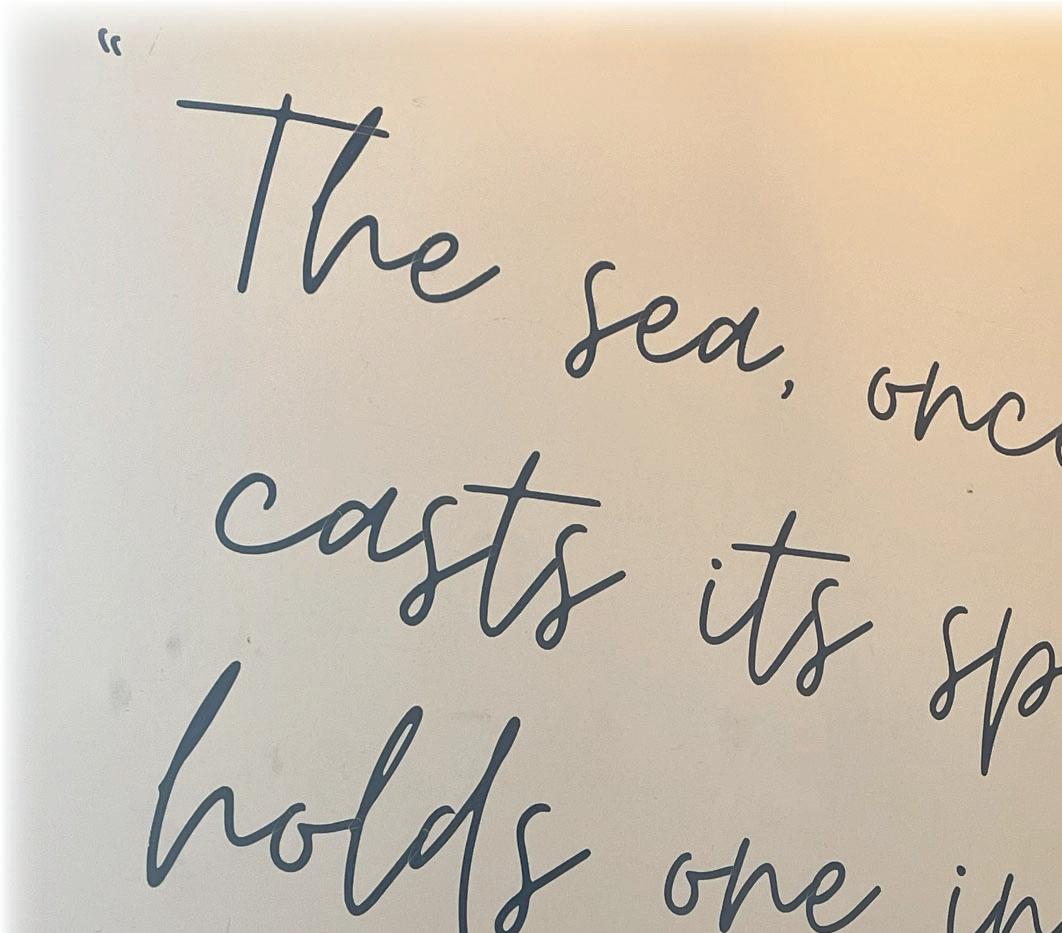 “
The sea, onc
casts its sp
holds one in